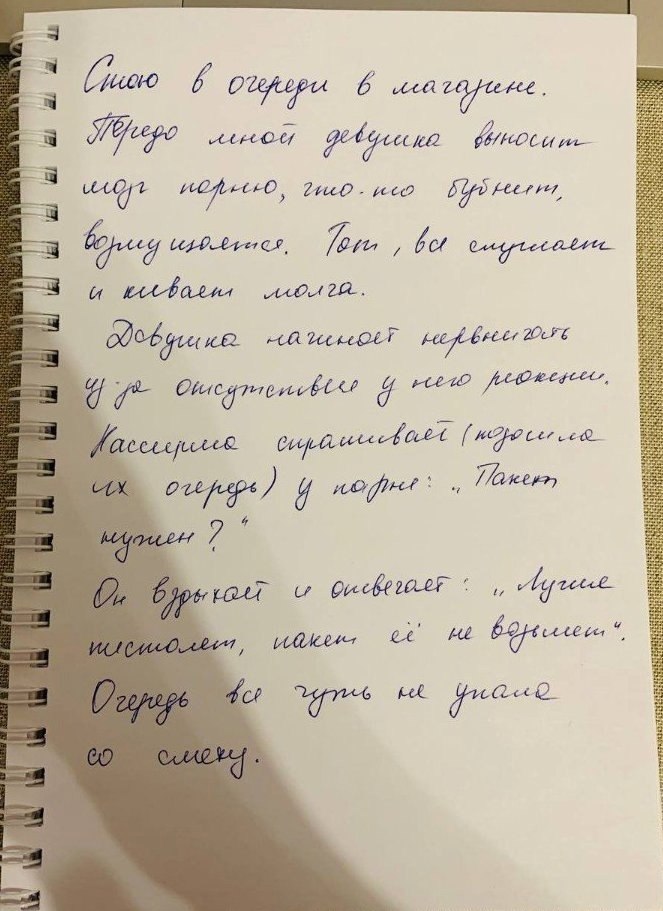 Стою в очереди в магазине.
Передо мной девушка выносит
мозг парню, что-то бубнит,
возмущается. Тот, все слушает
и кивает молча.
Девушка начинает нервничать
из-за отсутствие у него реакции.
Кассирша спрашивает (подошла
их очередь) у парня: „Пакет
нужен?"
Он вздыхает и отвечает: „Лучше
пистолет, пакет её не возьмет".
Очередь вся чуть не упала
со смеху.